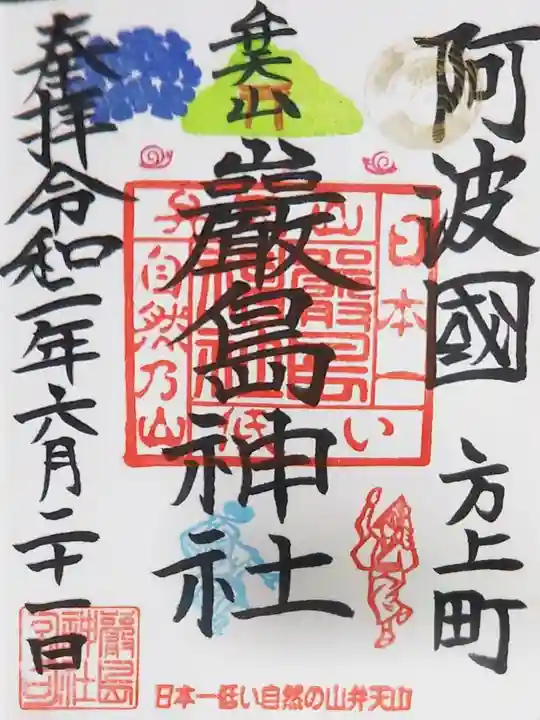 阿波國 方上町
弁天山
嚴島神社
奉拝 令和二年六月二十一日
日本一
低い
山
弁
自然乃山
嚴島
神社
嚴島
神社
日本一低い自然の山弁天山